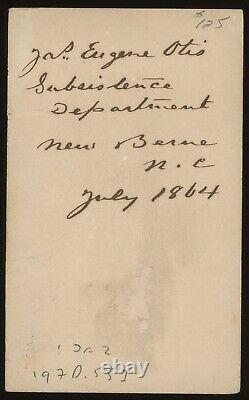 $125
Jas. Eugene Otis
Subsistence
Department
New Berne
N. C
July 1864
197D.